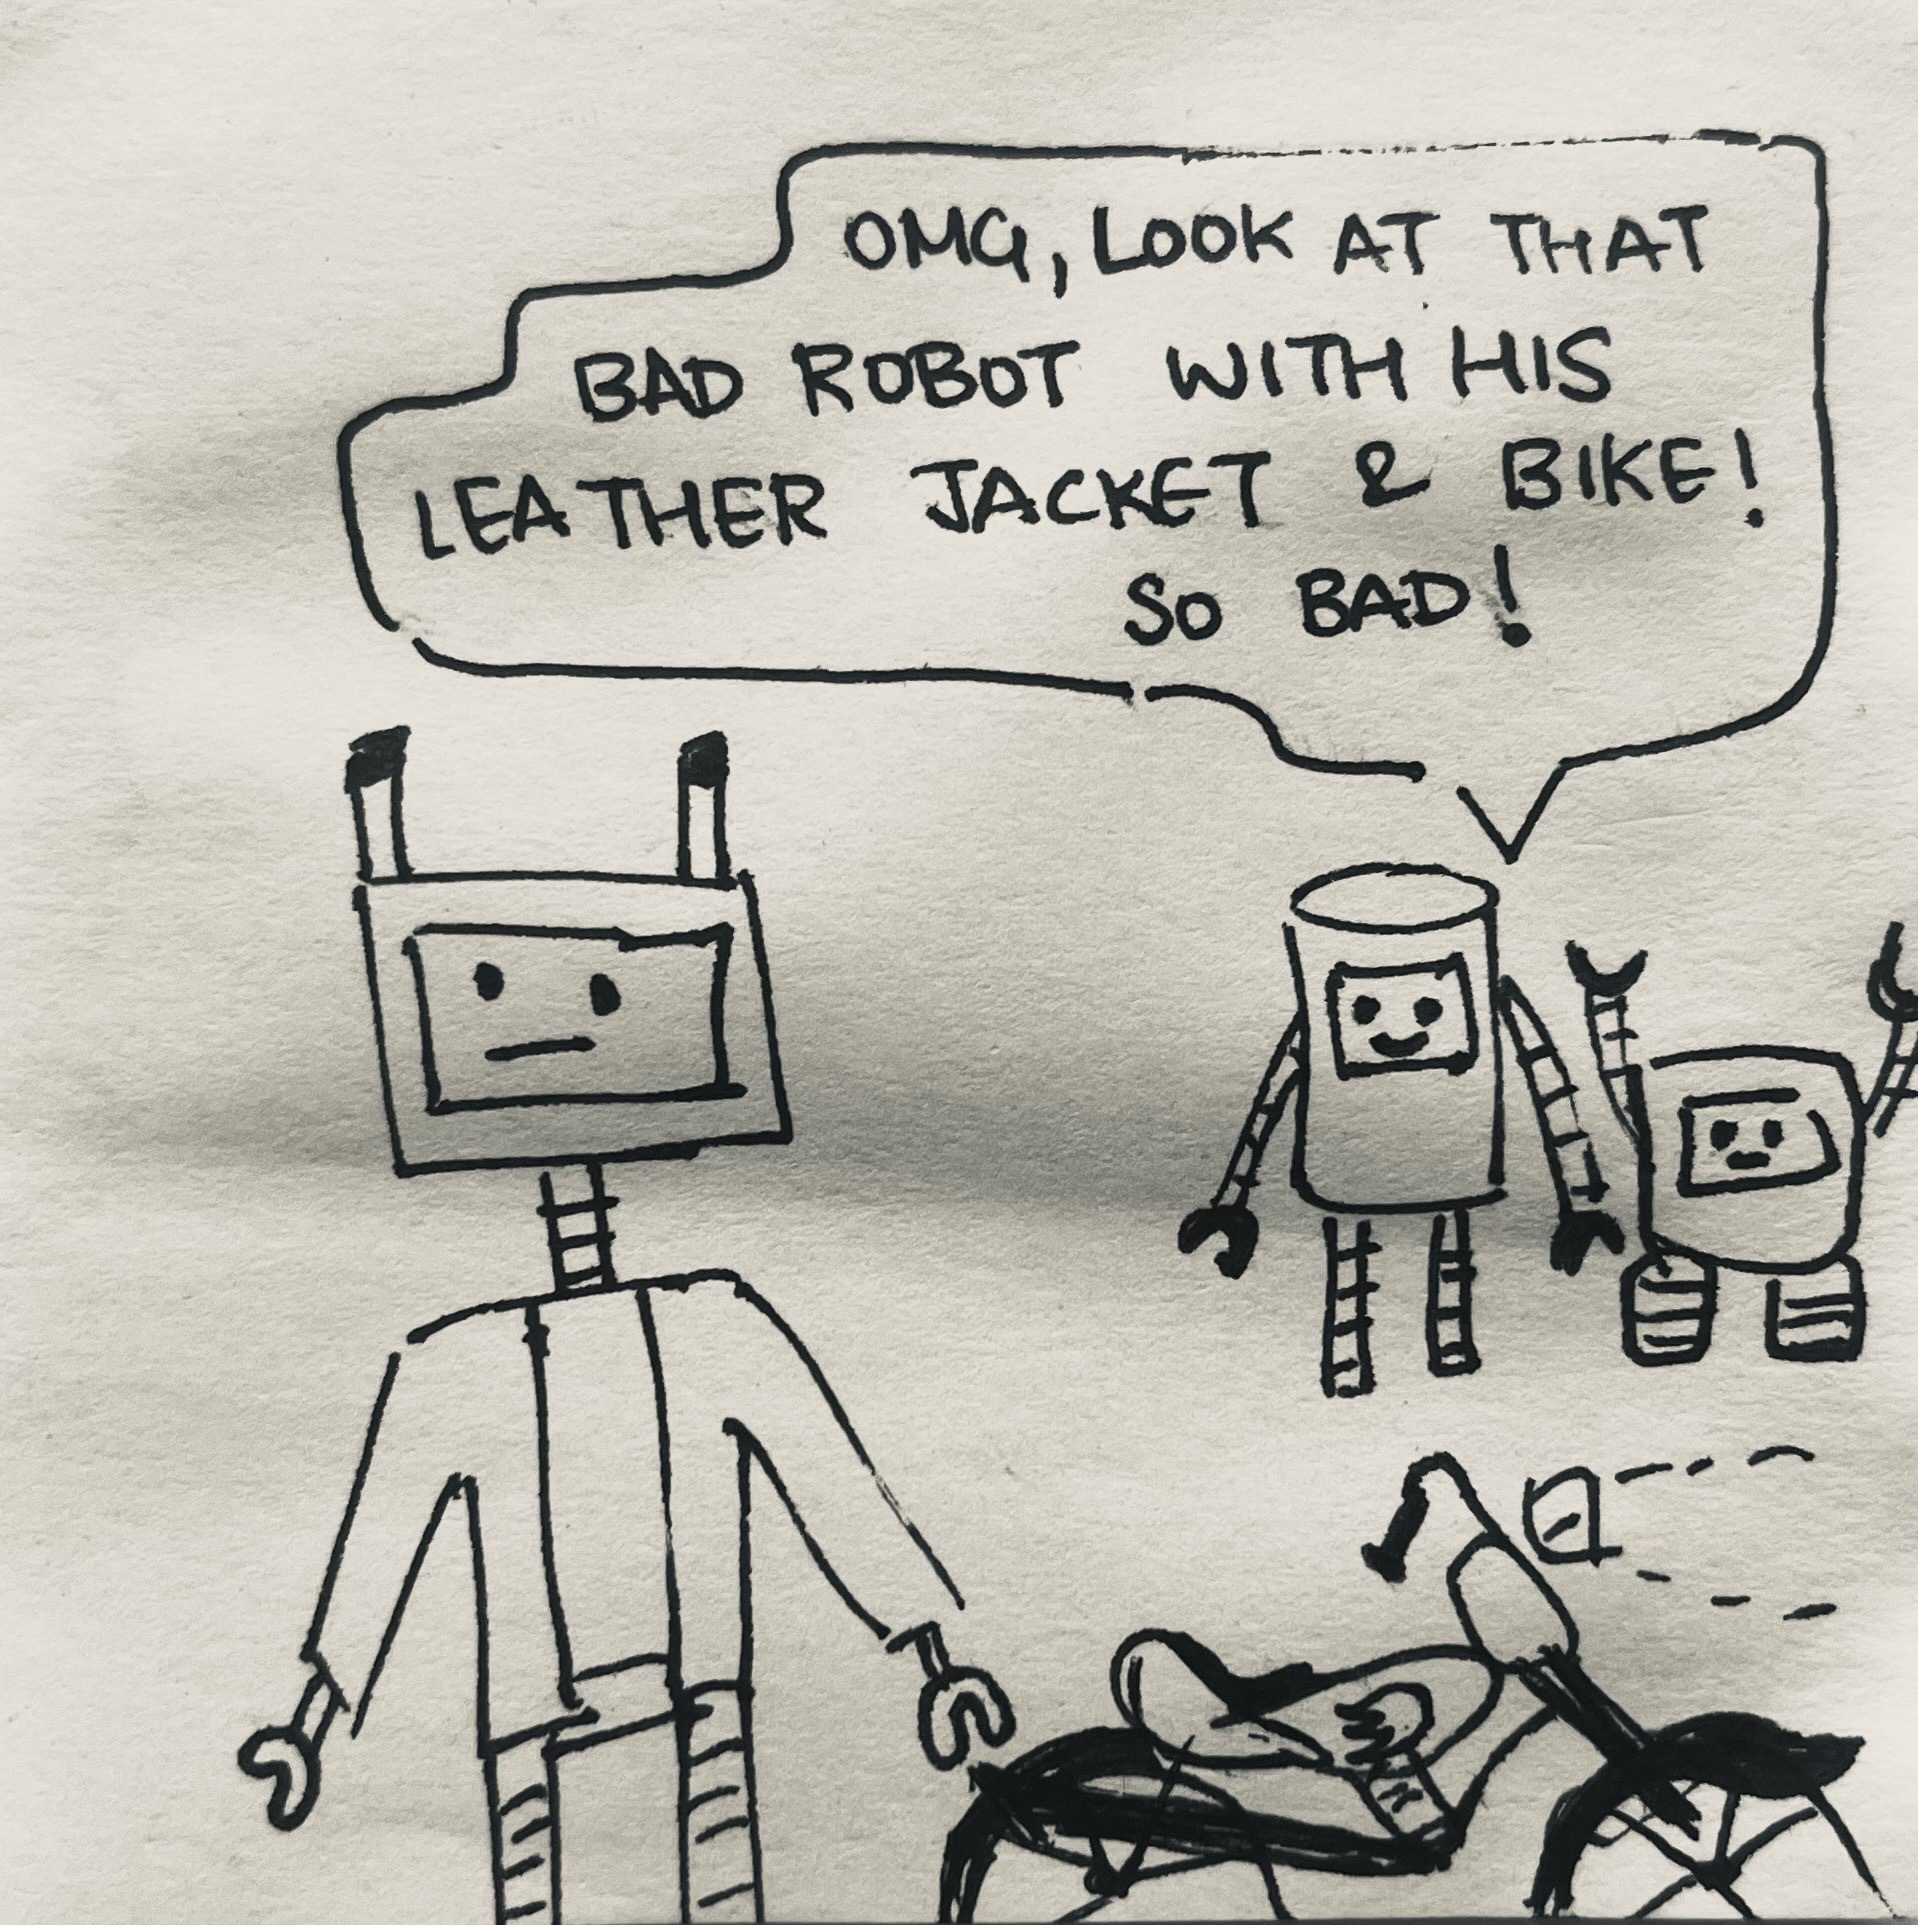 OMG, LOOK AT THAT
BAD ROBOT WITH HIS
LEATHER JACKET & BIKE!
SO BAD!